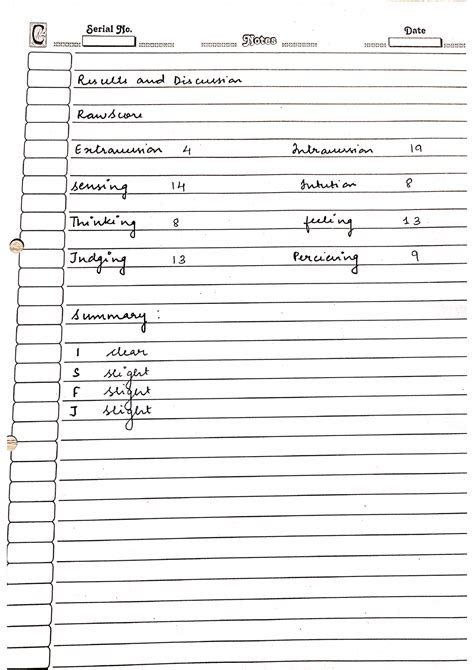 Serial No. Notes Date
Results and Discussion
Raw Score
Extraversion 4 Intraversion 19
Sensing 14 Intution 8
Thinking 8 feeling 13
Judging 13 Percieving 9
Summary :
I clear
S slight
F slight
J slight